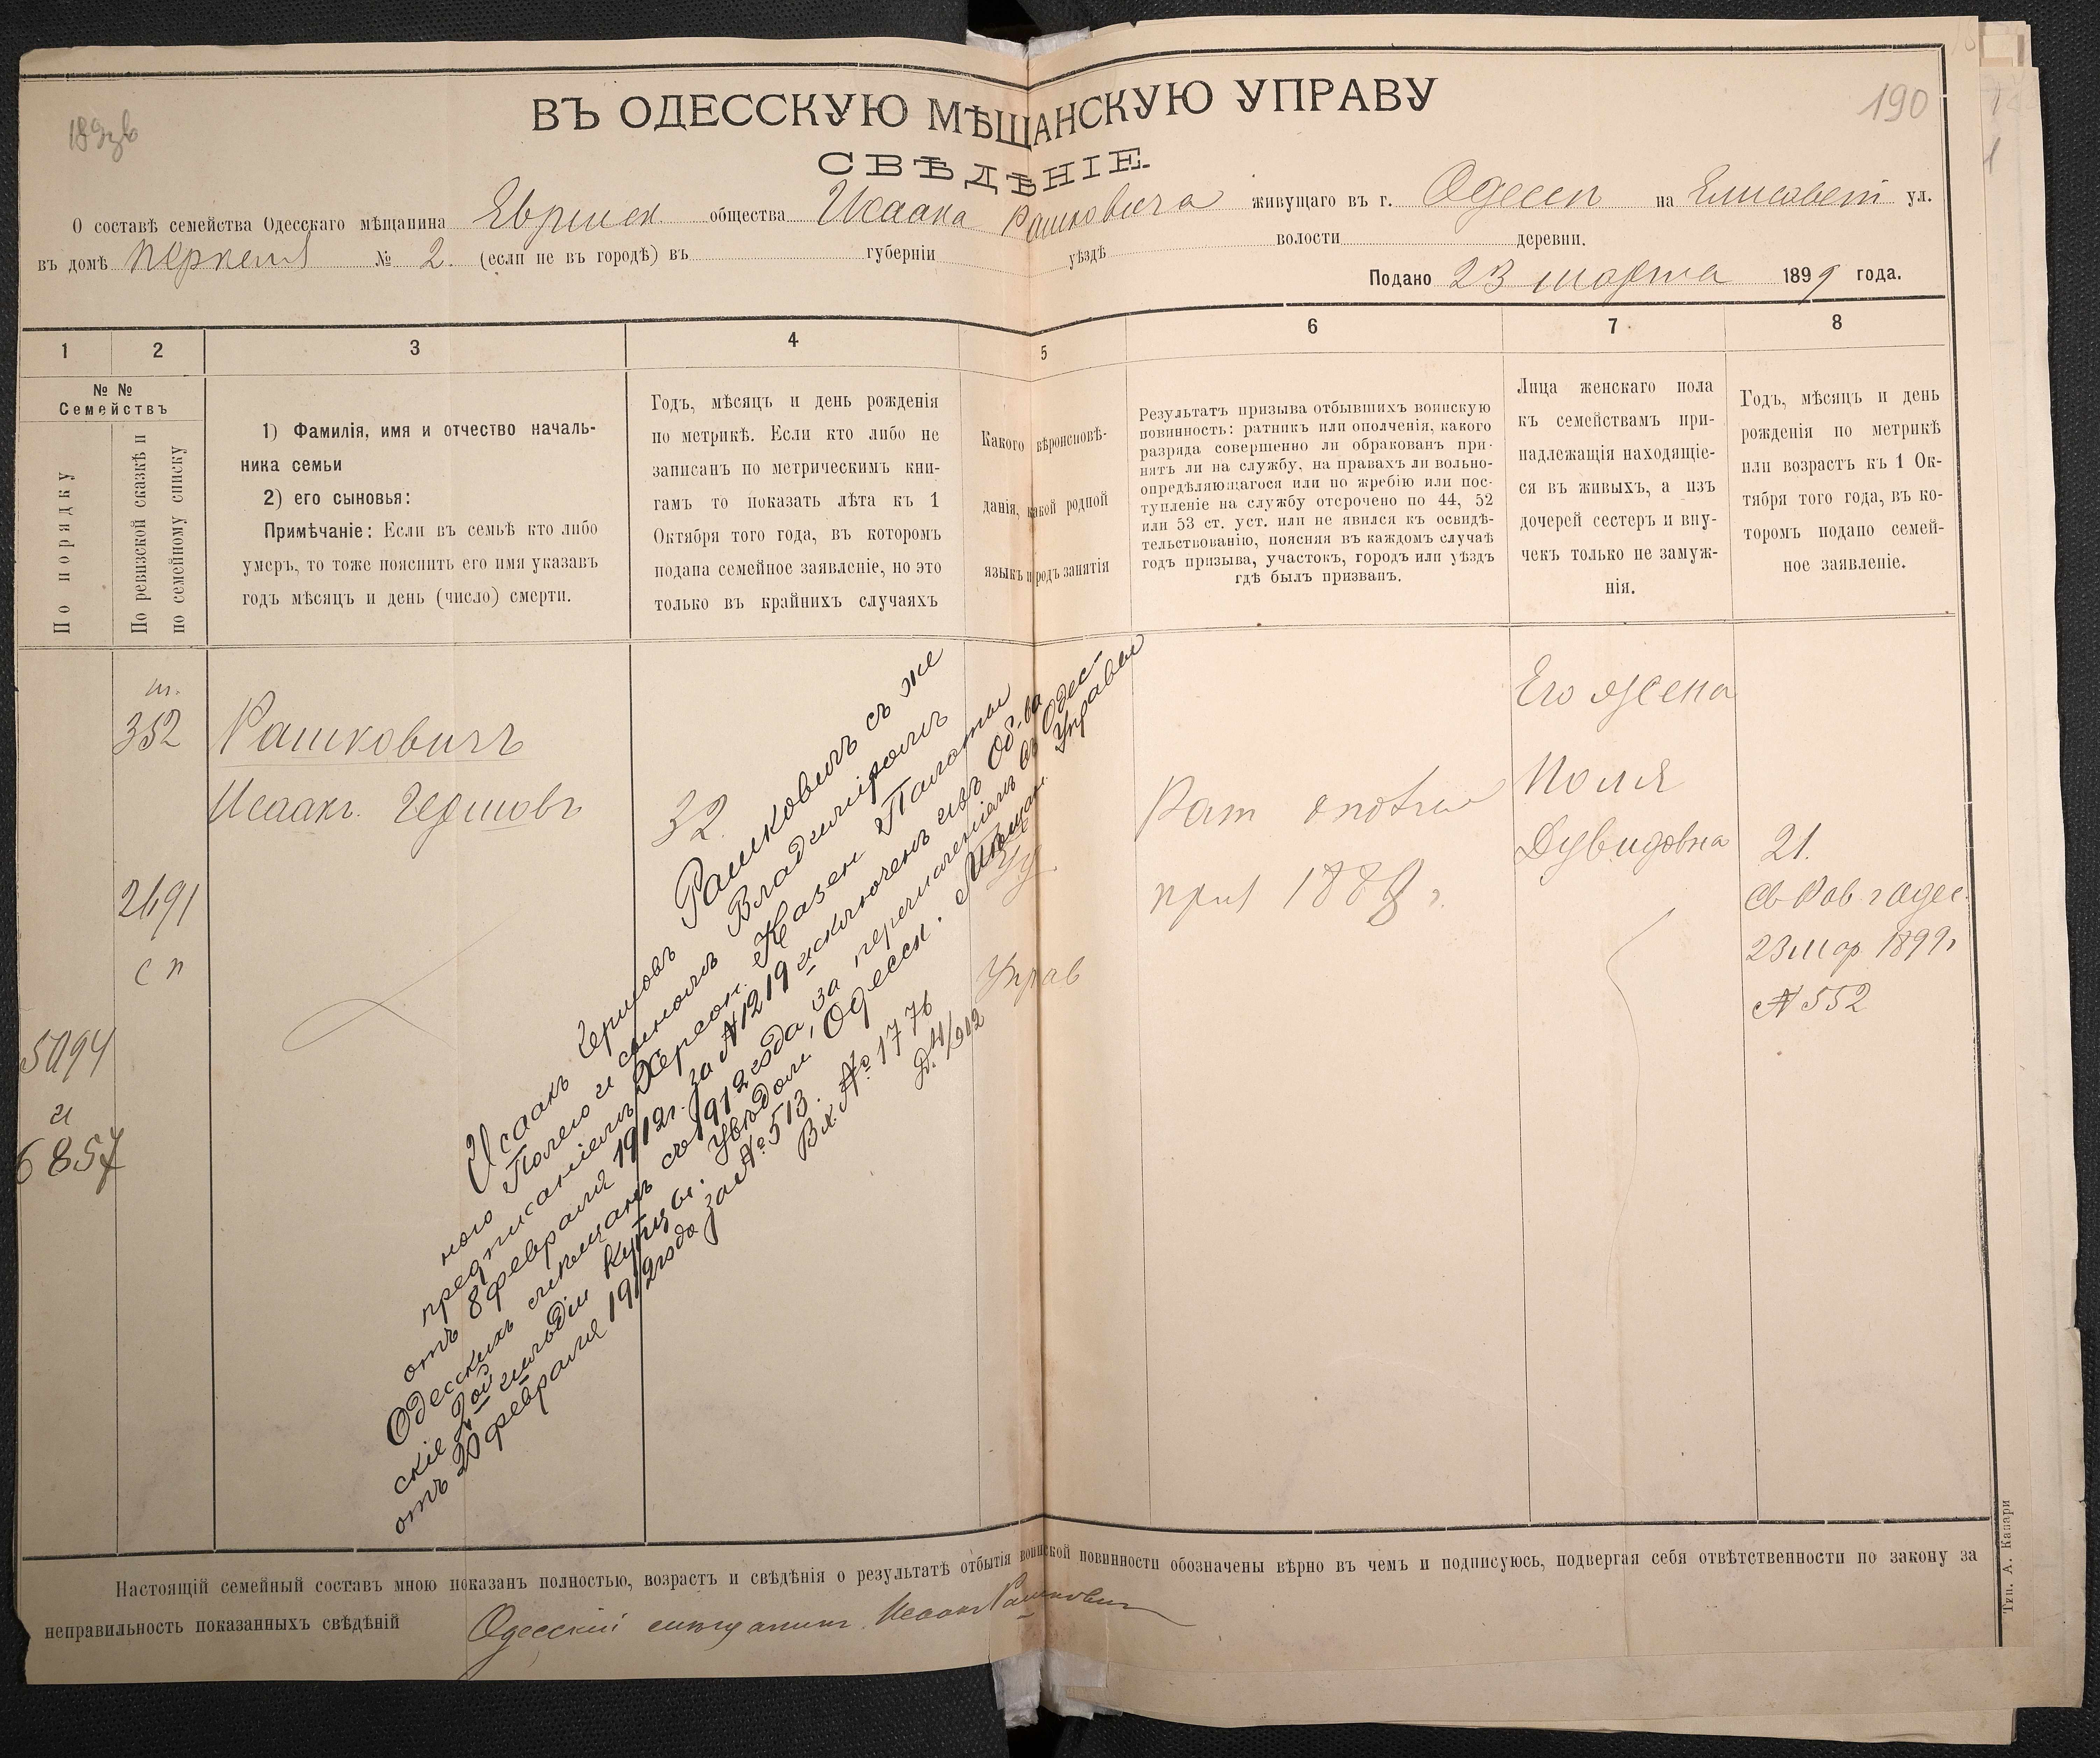 190
ВЪ ОДЕССКУЮ МѢЩАНСКУЮ УПРАВУ
СВѢДѢНІЕ.
О составѣ семейства Одесскаго мѣщанина Еврейск общества Исаака Рашковича живущаго въ г. Одессѣ на Елисавет ул.
въ домѣ № 2. (если не въ городѣ) въ губерніи уѣздѣ волости деревни.
Подано 23 марта 1899 года.
1 2 3 4 5 6 7 8
№ №
Семействъ
По порядку
По ревизской сказкѣ и
по семейному списку
1) Фамилія, имя и отчество началь-
ника семьи
2) его сыновья:
Примѣчаніе: Если въ семьѣ кто либо
умеръ, то тоже пояснить его имя указавъ
годъ мѣсяцъ и день (число) смерти.
Годъ, мѣсяцъ и день рожденія
по метрикѣ. Если кто либо не
записанъ по метрическимъ кни-
гамъ то показать лѣта къ 1
Октября того года, въ которомъ
подана семейное заявленіе, но это
только въ крайнихъ случаяхъ
Какого вѣроисповѣ-
данія, какой родной
языкъ и родъ занятія
Результатъ призыва отбывшихъ воинскую
повинность: ратникъ или ополченія, какого
разряда совершенно ли обракованъ при-
нятъ ли на службу, на правахъ ли вольно-
опредѣляющагося или по жребію или пос-
тупленіе на службу отсрочено по 44, 52
или 53 ст. уст. или не явился къ освидѣ-
тельствованію, поясняя въ каждомъ случаѣ
годъ призыва, участокъ, городъ или уѣздъ
гдѣ былъ призванъ.
Лица женскаго пола
къ семействамъ при-
надлежащія находящіе-
ся въ живыхъ, а изъ
дочерей сестеръ и вну-
чекъ только не замуж-
нія.
Годъ, мѣсяцъ и день
рожденія по метрикѣ
или возрастъ къ 1 Ок-
тября того года, въ ко-
торомъ подано семей-
ное заявленіе.
352
Рашковичъ
Исаакъ Гершовъ
32.
2691
с п
5094
и
6857
Исаакъ Гершовъ Рашковичъ съ же
ною Полею и сыномъ Владиміромъ
предписаніемъ Херсон. Казен. Палаты
отъ 8 февраля 1912 г. за № 1219 исключенъ изъ Об-ва
Одесскихъ мѣщанъ съ 1912 года, за перечисленіемъ въ Одес-
скіе 2ой гильдіи купцы. Увѣдом. Одесск. Мѣщан. Управы
отъ 20 февраля 1912 года за № 513. Вх. № 1776
Управ
Рат
приз 1888 г.
Его жена
Поля
Дувидовна
21.
Св Рав г Одес.
23 мар 1899 г
№ 552
Настоящій семейный составъ мною показанъ полностью, возрастъ и свѣдѣнія о результатѣ отбытія воинской повинности обозначены вѣрно въ чемъ и подписуюсь, подвергая себя отвѣтственности по закону за
неправильность показанныхъ свѣдѣній Одесскій мѣщанинъ Исаакъ Рашкович
Тип. А. Капари